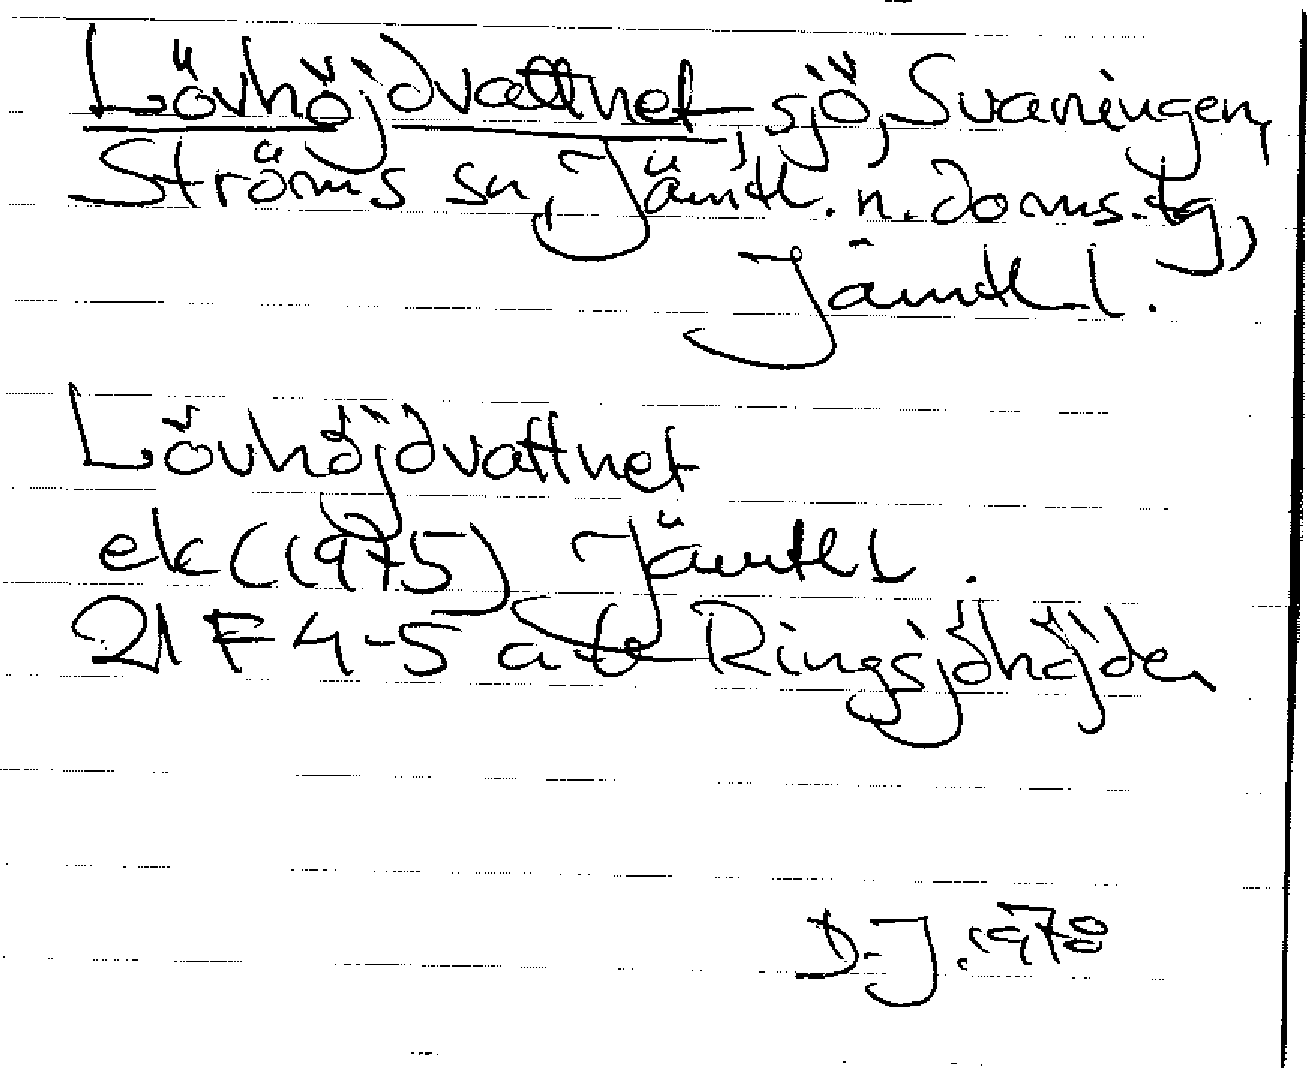 Lövhöjdvattnet, sjö, Svaningen,
Ströms sn, Jämtl. n. doms.tg,
Jämtl l.
Lövhöjdvattnet
ek (1975) Jämtl l.
21 F 4-5 a-b Ringsjöhöjden
D.J. 1978